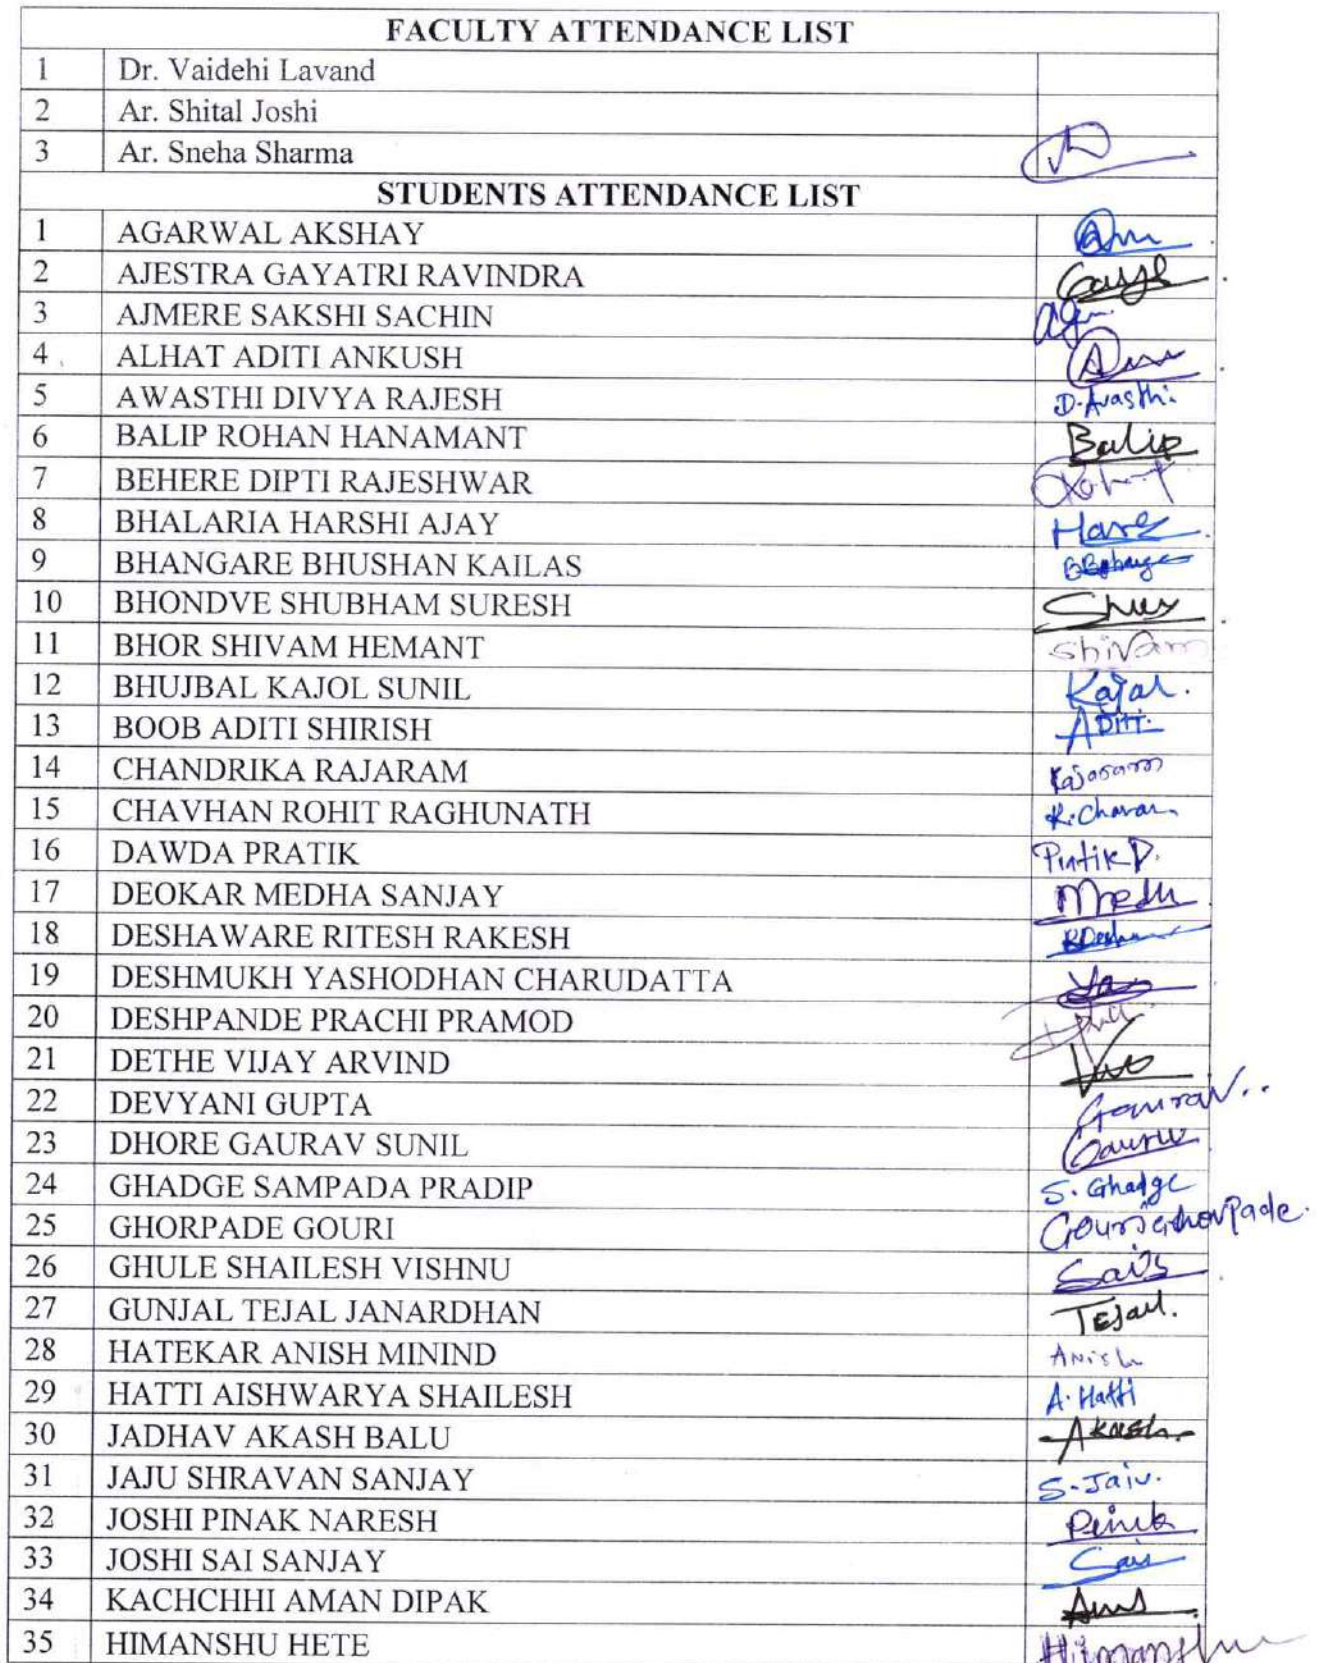 FACULTY ATTENDANCE LIST
1 Dr. Vaidehi Lavand
2 Ar. Shital Joshi
3 Ar. Sneha Sharma
STUDENTS ATTENDANCE LIST
1 AGARWAL AKSHAY
2 AJESTRA GAYATRI RAVINDRA
3 AJMERE SAKSHI SACHIN
4 ALHAT ADITI ANKUSH
5 AWASTHI DIVYA RAJESH D. Avasthi.
6 BALIP ROHAN HANAMANT Balip
7 BEHERE DIPTI RAJESHWAR
8 BHALARIA HARSHI AJAY
9 BHANGARE BHUSHAN KAILAS
10 BHONDVE SHUBHAM SURESH
11 BHOR SHIVAM HEMANT Shivam
12 BHUJBAL KAJOL SUNIL Kajal.
13 BOOB ADITI SHIRISH ADITI
14 CHANDRIKA RAJARAM Rajaram
15 CHAVHAN ROHIT RAGHUNATH R. Chavan
16 DAWDA PRATIK Pratik D.
17 DEOKAR MEDHA SANJAY
18 DESHAWARE RITESH RAKESH
19 DESHMUKH YASHODHAN CHARUDATTA
20 DESHPANDE PRACHI PRAMOD
21 DETHE VIJAY ARVIND
22 DEVYANI GUPTA Gaurav..
23 DHORE GAURAV SUNIL
24 GHADGE SAMPADA PRADIP S. Ghadge
25 GHORPADE GOURI Gouri Ghorpade.
26 GHULE SHAILESH VISHNU
27 GUNJAL TEJAL JANARDHAN
28 HATEKAR ANISH MININD Anish
29 HATTI AISHWARYA SHAILESH A. Hatti
30 JADHAV AKASH BALU Akash
31 JAJU SHRAVAN SANJAY
32 JOSHI PINAK NARESH
33 JOSHI SAI SANJAY
34 KACHCHHI AMAN DIPAK
35 HIMANSHU HETE Himanshu